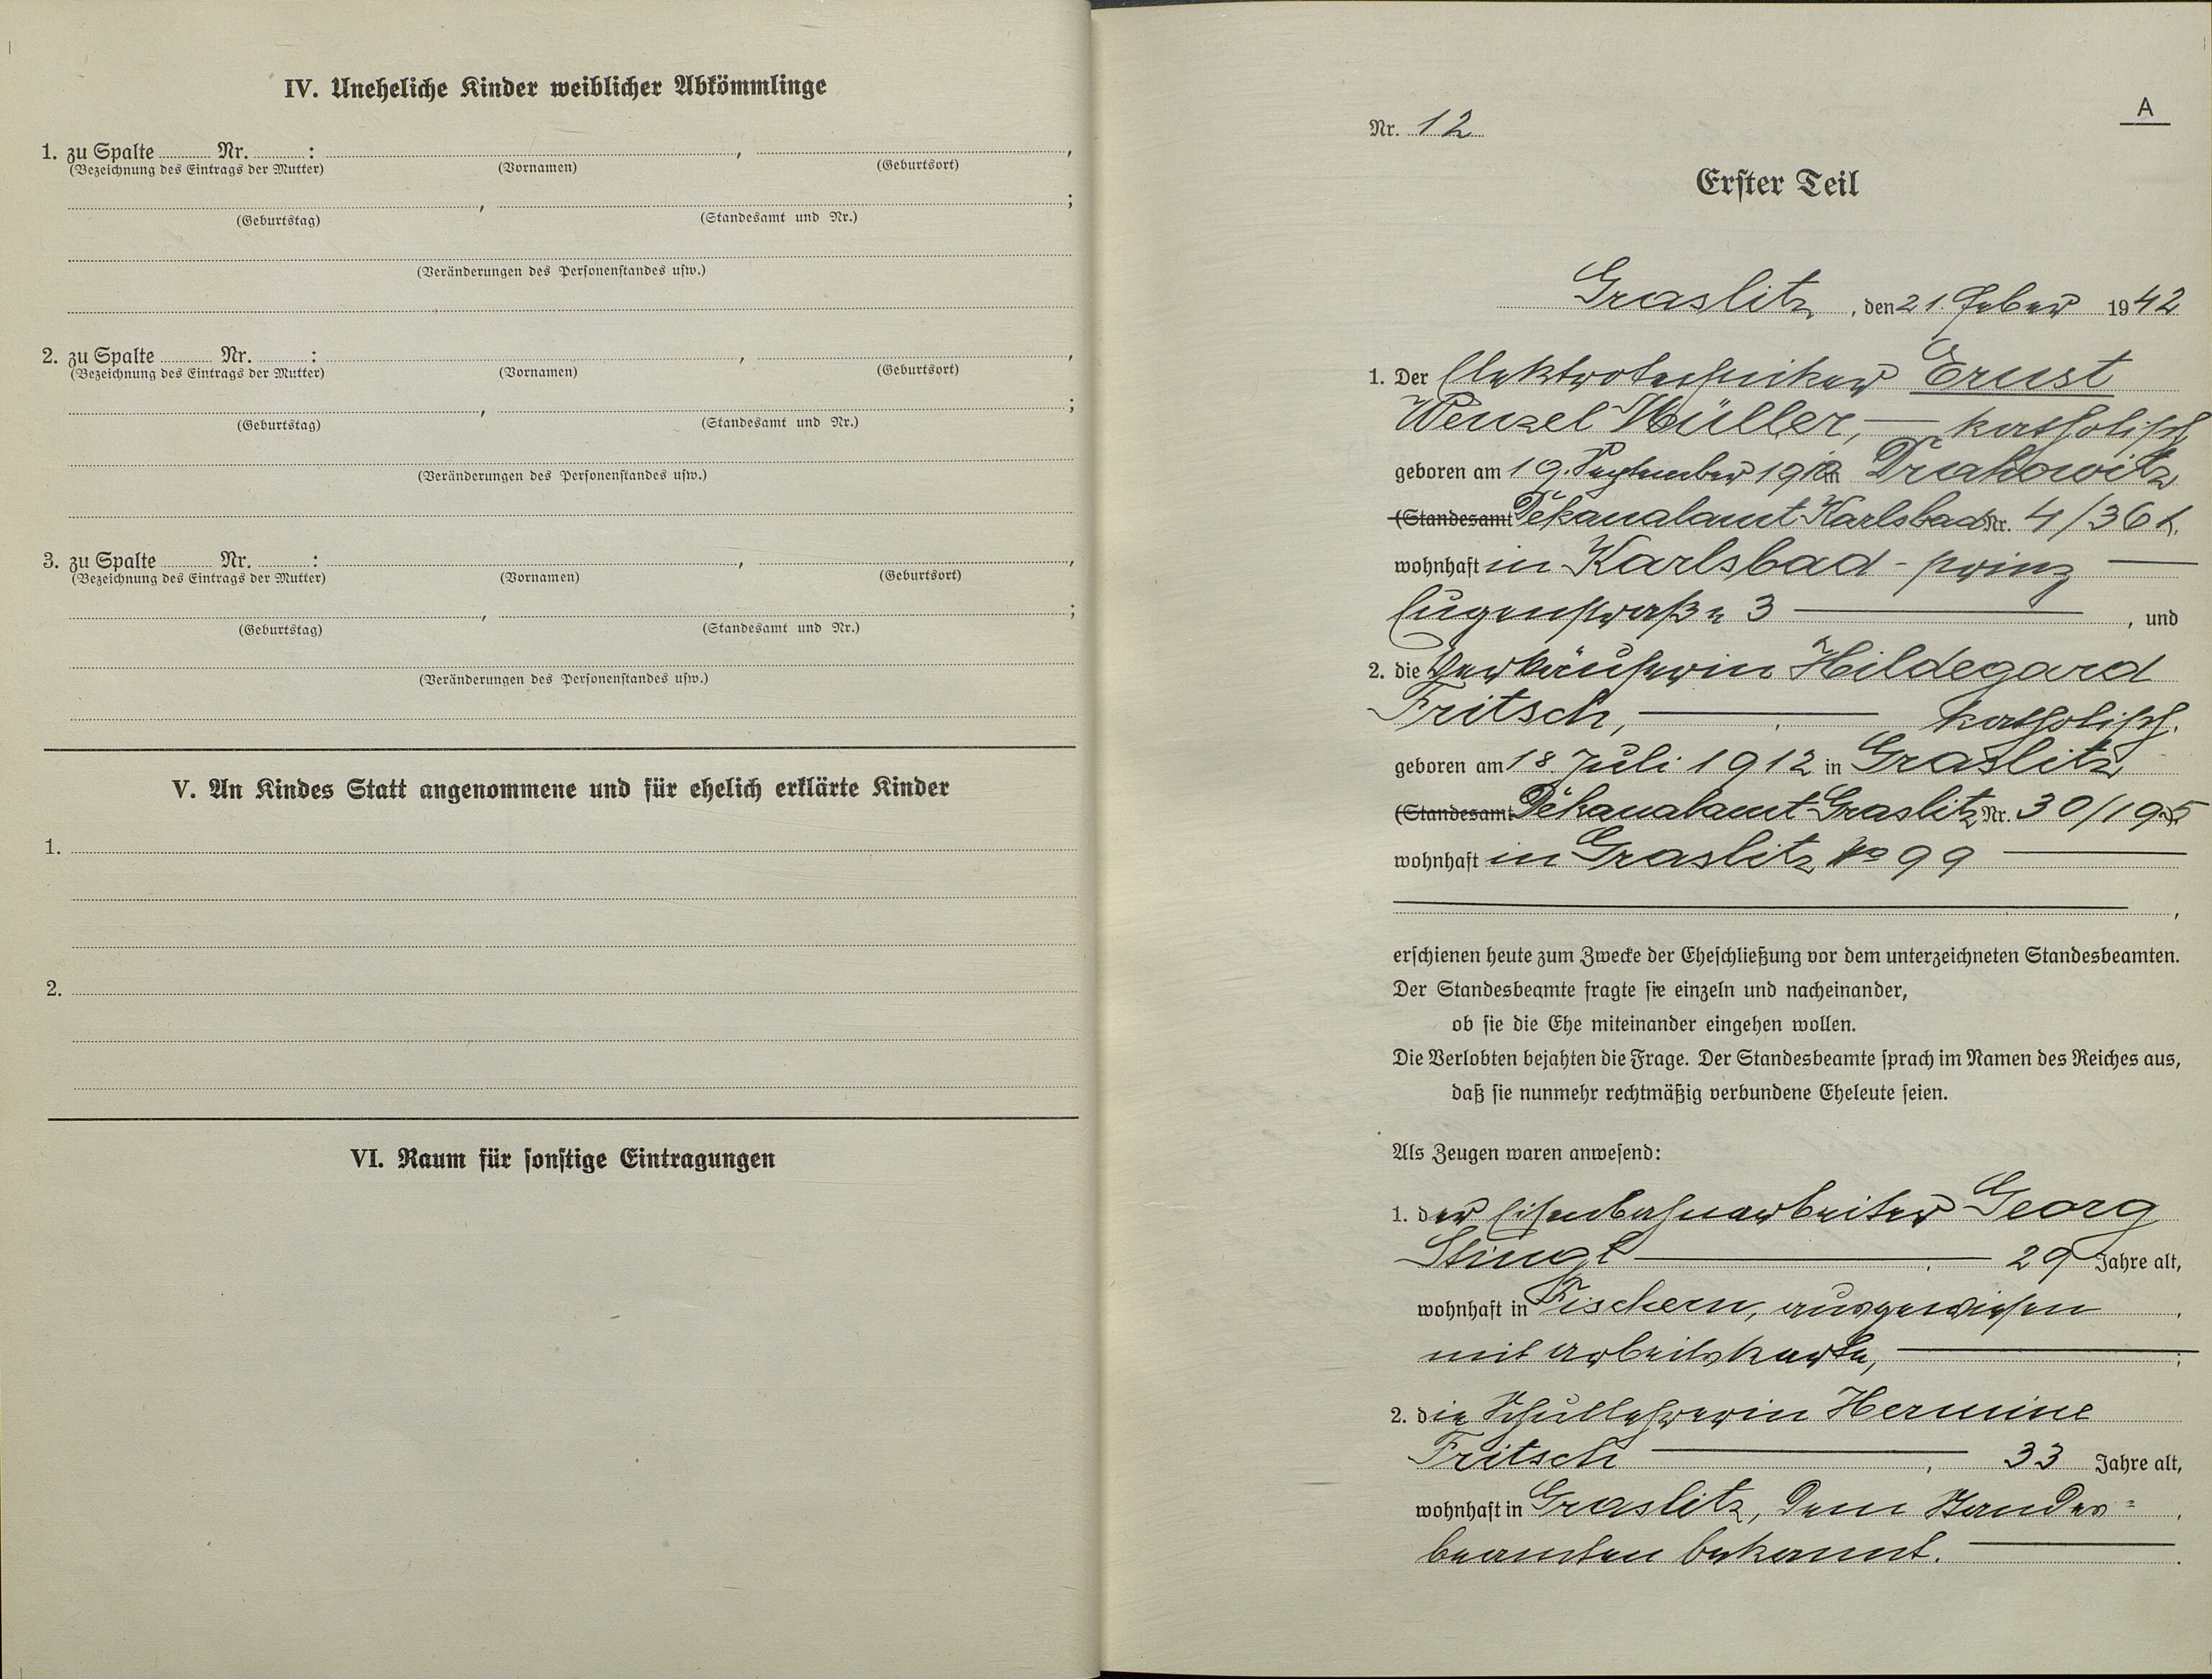 IV. Uneheliche Kinder weiblicher Abkömmlinge
1. zu Spalte ........ Nr. ........ : ........ , ........ ,
(Bezeichnung des Eintrags der Mutter) (Vornamen) (Geburtsort)
........ , ........ ;
(Geburtstag) (Standesamt und Nr.)
(Veränderungen des Personenstandes usw.)
2. zu Spalte ........ Nr. ........ : ........ , ........ ,
(Bezeichnung des Eintrags der Mutter) (Vornamen) (Geburtsort)
........ , ........ ;
(Geburtstag) (Standesamt und Nr.)
(Veränderungen des Personenstandes usw.)
3. zu Spalte ........ Nr. ........ : ........ , ........ ,
(Bezeichnung des Eintrags der Mutter) (Vornamen) (Geburtsort)
........ , ........ ;
(Geburtstag) (Standesamt und Nr.)
(Veränderungen des Personenstandes usw.)
V. An Kindes Statt angenommene und für ehelich erklärte Kinder
1.
2.
VI. Raum für sonstige Eintragungen
A
Nr. 12
Erster Teil
Graslitz, den 21. Feber 1942
1. Der Elektrotechniker Ernst
Wenzel Müller, — katholisch
geboren am 19. September 1912 in Drahowitz
(Standesamt Dekanalamt Karlsbad Nr. 4/361),
wohnhaft in Karlsbad - Prinz —
Eugenstraße 3 —, und
2. die Verkäuferin Hildegard
Fritsch, — katholisch.
geboren am 18. Juli 1912 in Graslitz
(Standesamt Dekanalamt Graslitz Nr. 30/195
wohnhaft in Graslitz No 99 —
—,
erschienen heute zum Zwecke der Eheschließung vor dem unterzeichneten Standesbeamten.
Der Standesbeamte fragte sie einzeln und nacheinander,
ob sie die Ehe miteinander eingehen wollen.
Die Verlobten bejahten die Frage. Der Standesbeamte sprach im Namen des Reiches aus,
daß sie nunmehr rechtmäßig verbundene Eheleute seien.
Als Zeugen waren anwesend:
1. der Eisenbahnarbeiter Georg
Stingl —, 29 Jahre alt,
wohnhaft in Fischern, ausgewiesen
mit Arbeitskarte, — ;
2. die Schullehrerin Hermine
Fritsch —, 33 Jahre alt,
wohnhaft in Graslitz, dem Standes=
beamten bekannt. —